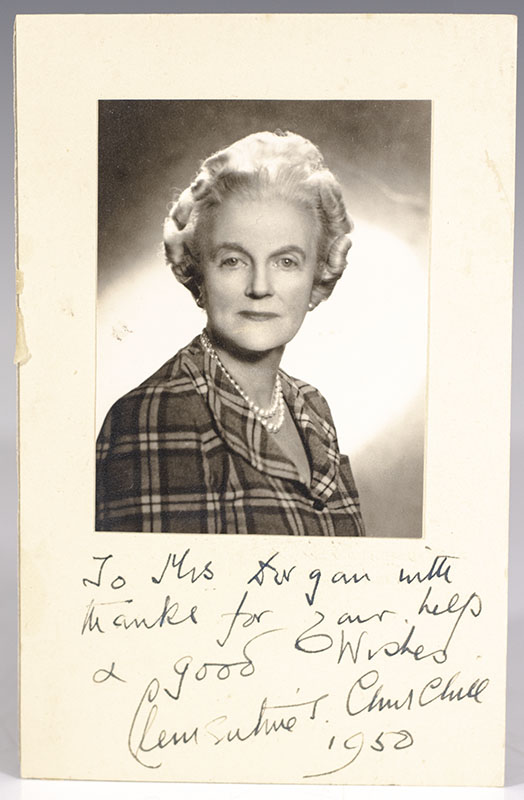 To Mrs Dorgan with
thanks for your help
& good Wishes
Clementine S. Churchill
1950